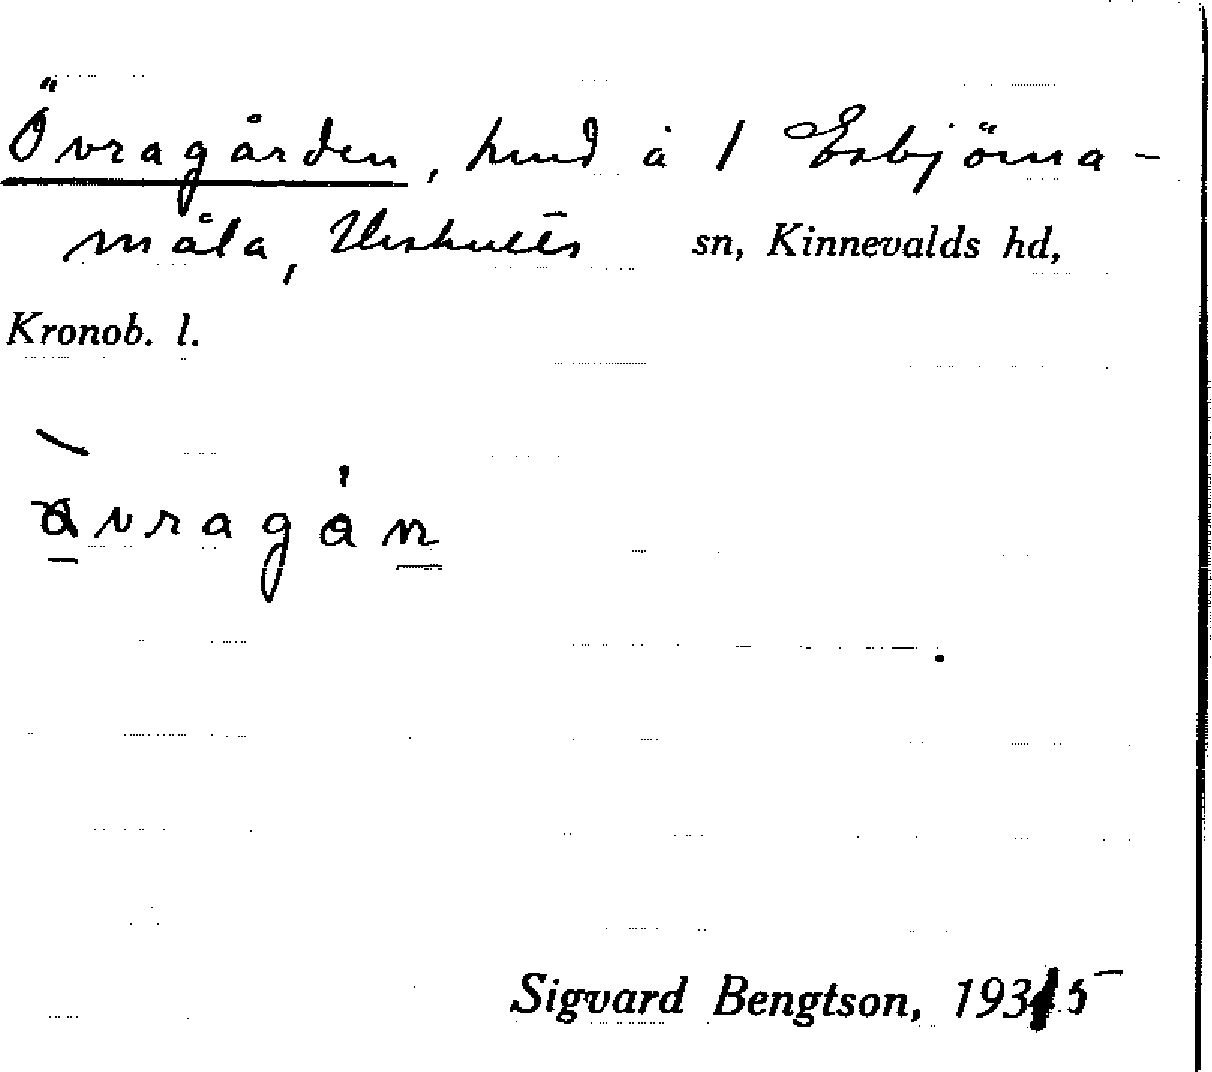 Övragården, hmd å 1 Esbjörna-
måla, Urshults sn, Kinnevalds hd,
Kronob. l.
Sigvard Bengtson, 1935